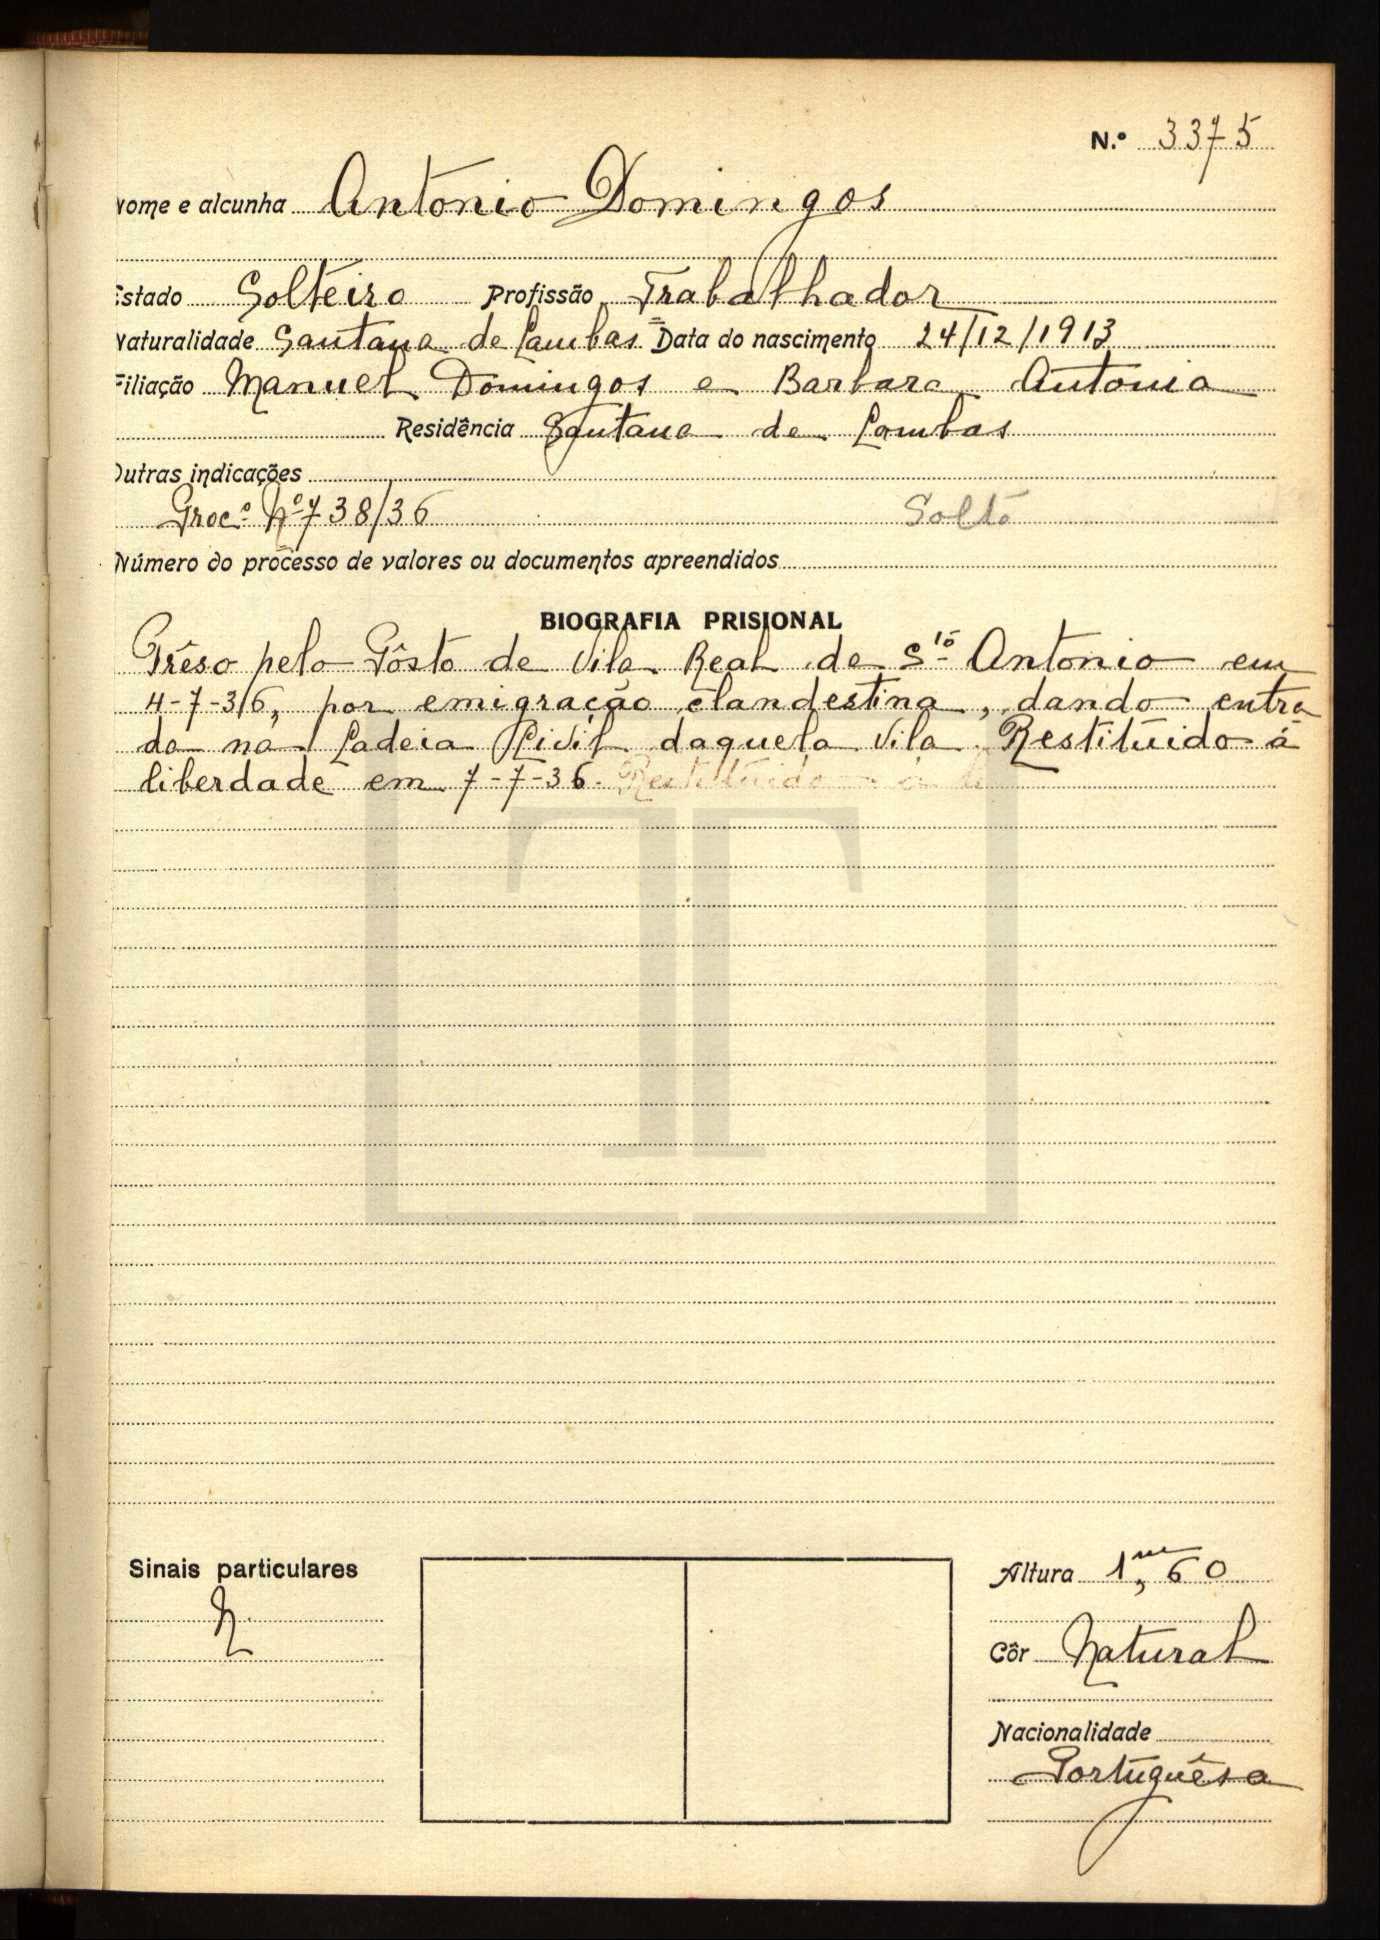 N.º 3375
Nome e alcunha Antonio Domingos
Estado Solteiro Profissão Trabalhador
Naturalidade Santana de Cambas = Data do nascimento 24/12/1913
Filiação Manuel Domingos e Barbara Antonia
Residência Santana de Cambas
Outras indicações
Proc.º Nº 738/36 Solto
Número do processo de valores ou documentos apreendidos
BIOGRAFIA PRISIONAL
Prêso pelo Pôsto de Vila Real de Stº Antonio em
4-7-36, por emigração clandestina, dando entra
da na Cadeia Civil daquela Vila. Restituido á
liberdade em 7-7-36. Restituido á li
Sinais particulares
N.
Altura 1m,60
Côr Natural
Nacionalidade
Portuguêsa